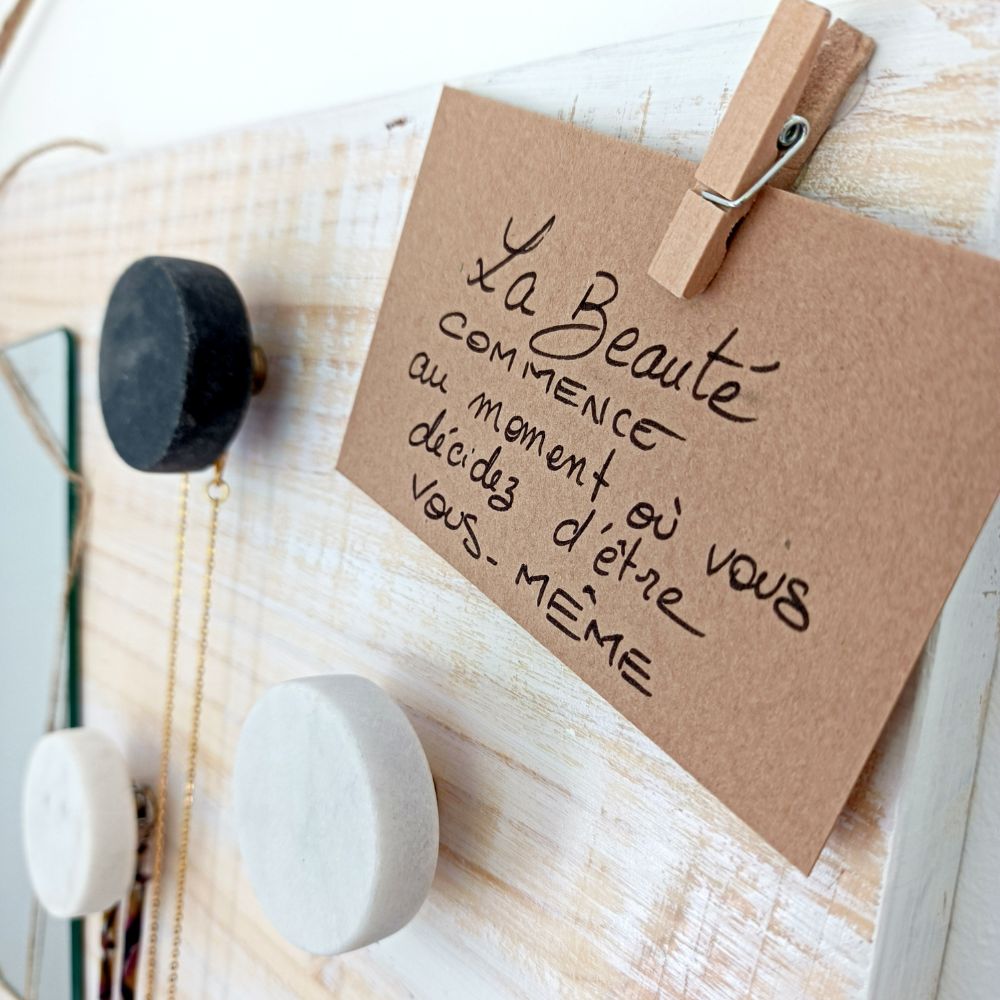 La Beauté
COMMENCE
au moment où vous
décidez d'être
vous-MÊME